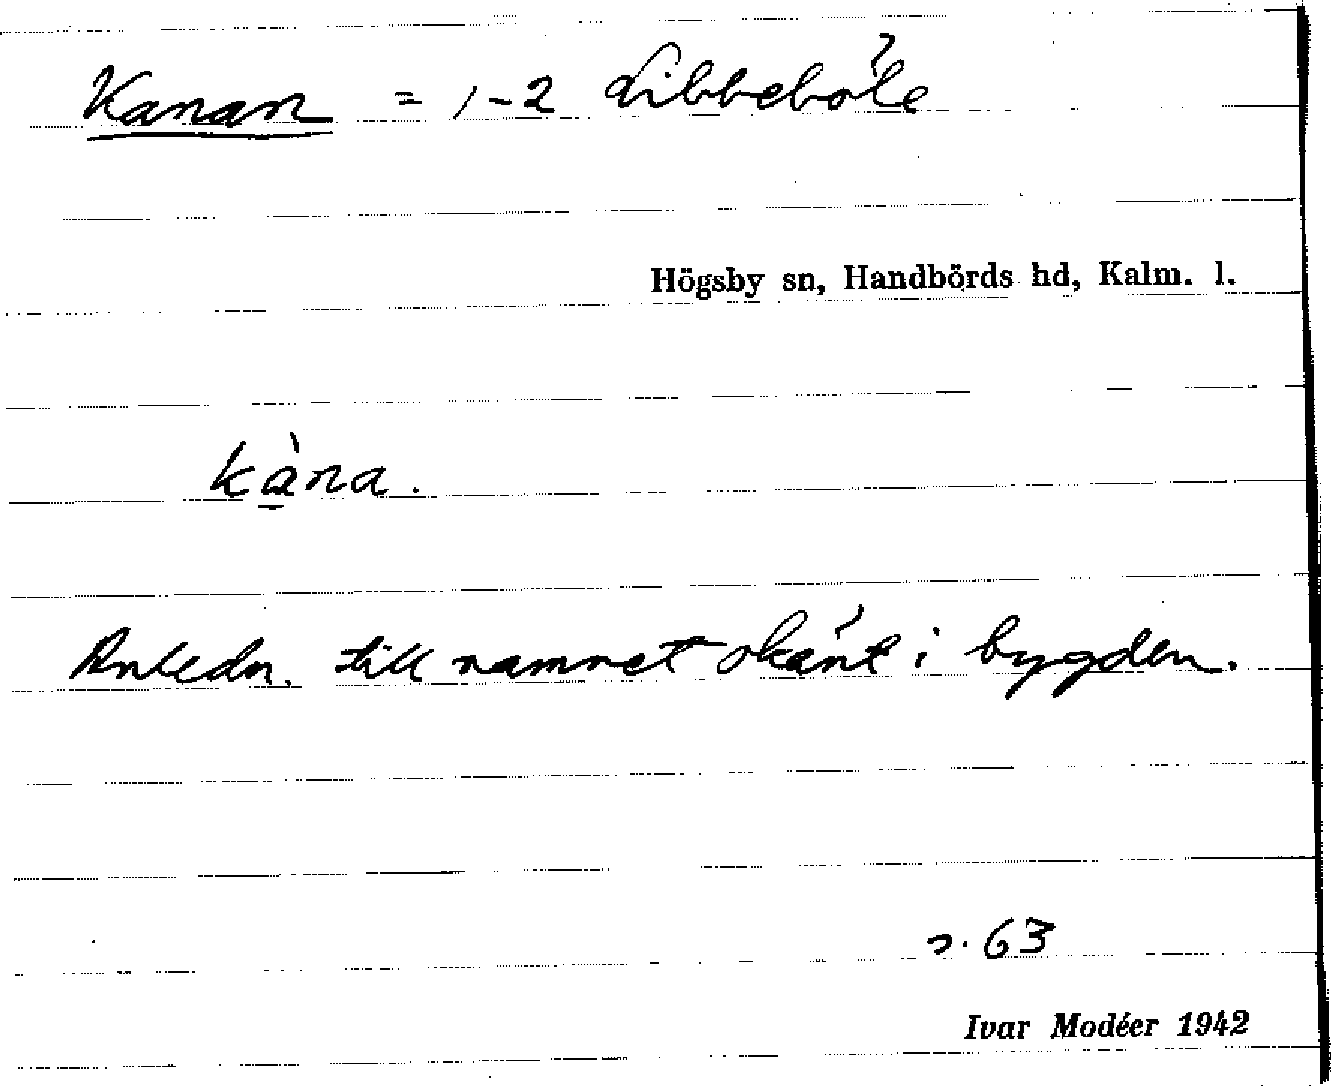 Kanan = 1-2 Libbeböle
Högsby sn, Handbörds hd, Kalm. l.
kàna.
Anledn. till namnet okänt i bygden.
s. 63
Ivar Modéer 1942